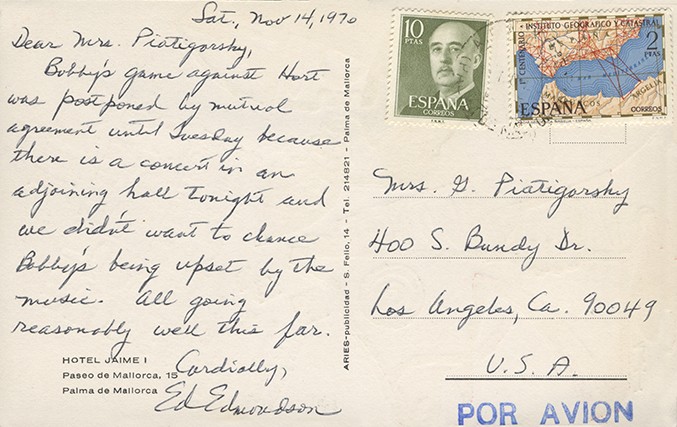 Sat., Nov 14, 1970
Dear Mrs. Piatigorsky,
Bobby's game against Hort
was postponed by mutual
agreement until Tuesday because
there is a concert in an
adjoining hall tonight and
we didn't want to chance
Bobby's being upset by the
music. All going
reasonably well thus far.
Cordially,
Ed Edmondson
HOTEL JAIME I
Paseo de Mallorca, 15
Palma de Mallorca
ARIES-publicidad - S. Felio, 14 - Tel. 214821 - Palma de Mallorca
10
PTAS
ESPAÑA
CORREOS
1er CENTENARIO
INSTITUTO GEOGRAFICO Y CATASTRAL
2
PTAS
ESPAÑA
CORREOS
Mrs. G. Piatigorsky
400 S. Bundy Dr.
Los Angeles, Ca. 90049
U.S.A.
POR AVION